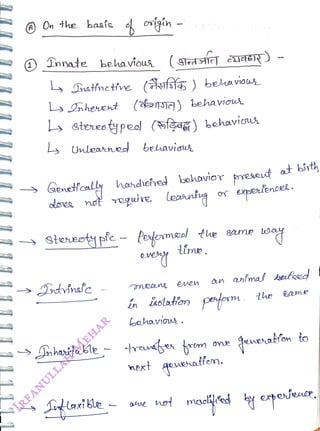 Ⓐ On the basis of origin -
① Innate behaviour (अन्तर्जात व्यवहार) -
↳ Instinctive (नैसर्गिक) behaviour
↳ Inherent (वंशागत) behaviour
↳ Stereotyped (रूढ़िबद्ध) behaviour
↳ Unlearned behaviour
→ Genetically hardwired behavior present at birth
does not require learning or experiences.
→ Stereotypic - Performed the same way
every time.
→ Intrinsic - means even an animal raised
in isolation perform the same
behaviour.
→ Inheritable - transfer from one generation to
next generation.
→ Inflexible - are not modified by experience.
IRFANULLAH MEHAR